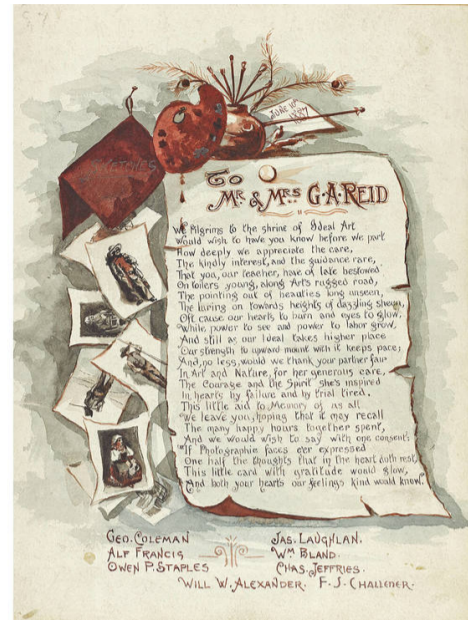 SKETCHES
JUNE 10th
1887
To
Mr & Mrs G.A. REID
We Pilgrims to the shrine of Ideal Art
Would wish to have you know before we part
How deeply we appreciate the care,
The kindly interest, and the guidance rare,
That you, our teacher, have of late bestowed
On toilers young, along Art's rugged road,
The pointing out of beauties long unseen,
The luring on towards heights of dazzling sheen,
Oft cause our hearts to burn and eyes to glow.
While power to see and power to labor grow,
And still as our Ideal takes higher place
Our strength to upward mount with it keeps pace;
And, no less, would we thank your partner fair
In Art and Nature, for her generous care,
The Courage and the Spirit she's inspired
In hearts by failure and by trial tired.
This little aid to Memory of us all
We leave you, hoping that it may recall
The many happy hours together spent,
And we would wish to say with one consent:
"If Photographic faces ever expressed
One half the thoughts that in the heart doth rest,
This little card with gratitude would glow,
And both your hearts our feelings kind would know."
GEO. COLEMAN
JAS. LAUGHLAN.
ALF FRANCIS
WM BLAND.
OWEN P. STAPLES
CHAS. JEFFRIES.
WILL W. ALEXANDER. F. J. CHALLENER.